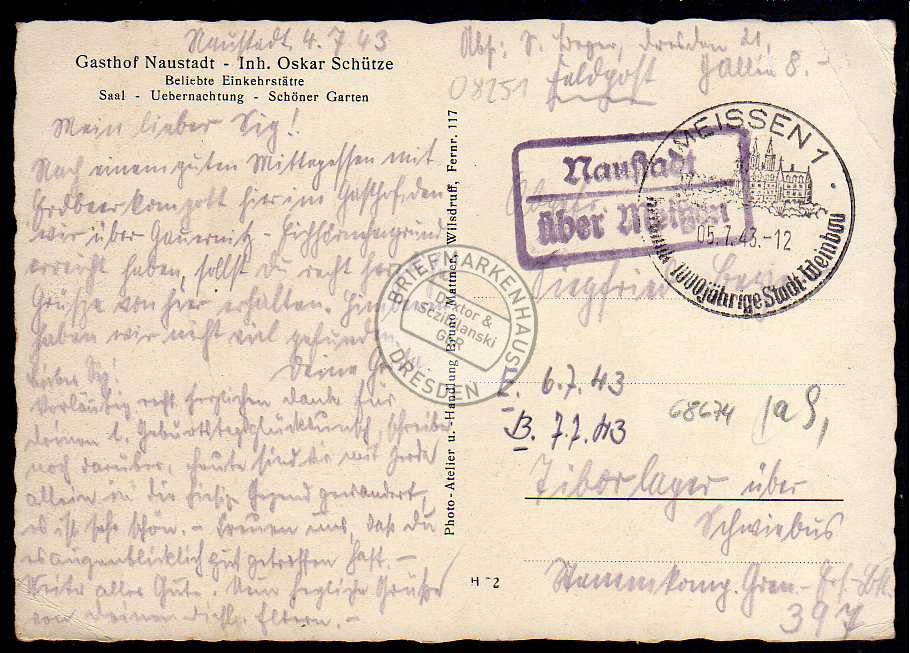 Naustadt, 4.7.43
Gasthof Naustadt - Inh. Oskar Schütze
Beliebte Einkehrstätte
Saal - Uebernachtung - Schöner Garten
Mein lieber Sig!
Nach einem guten Mittagessen mit
Erdbeerkompott hier im Gasthof, den
wir über Gauernitz - Eichhörnchengrund
erreicht haben, sollst du recht
Grüße von hier erhalten.
haben wir nicht viel gefunden.
Deine
Lieber Sig!
Vorläufig recht herzlichen Dank für
deinen l. Geburtstagsglückwunsch, schreibe
noch darüber, heute sind wir mit
allein in die hiesige Gegend gewandert,
es ist sehr schön. - Freuen uns, daß du
es augenblicklich gut getroffen hast. -
Weiter alles Gute. Nun herzliche Grüße
von deinen Eltern. -
Photo-Atelier u. -Handlung Bruno Mattner, Wilsdruff, Fernr. 117
Abs: Dresden 21,
8.
08251
Feldpost
Naustadt
über Meißen
MEISSEN 1
05.7.43.-12
1000jährige Stadt-Weinbau
Siegfried
BRIEFMARKENHAUS
Doktor &
GbR
DRESDEN
6.7.43
B. 7.7.43
68674
Tiborlager über
Schwiebus
Stammkomp. Gren.-Ers.-Btl.
397
H 2